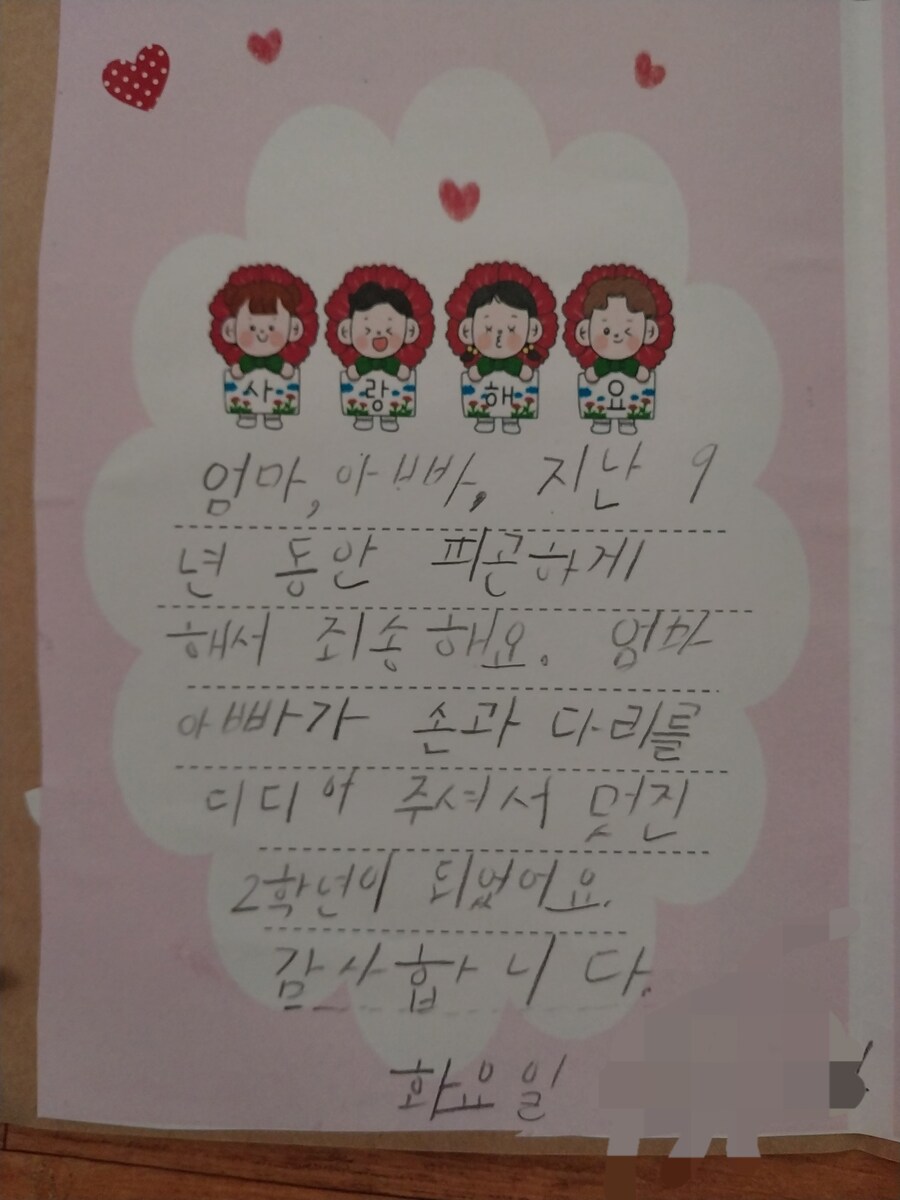 사랑해요
엄마, 아빠, 지난 9
년 동안 피곤하게
해서 죄송해요. 엄마
아빠가 손과 다리를
디디어 주셔서 멋진
2학년이 되었어요.
감사합니다.
화요일